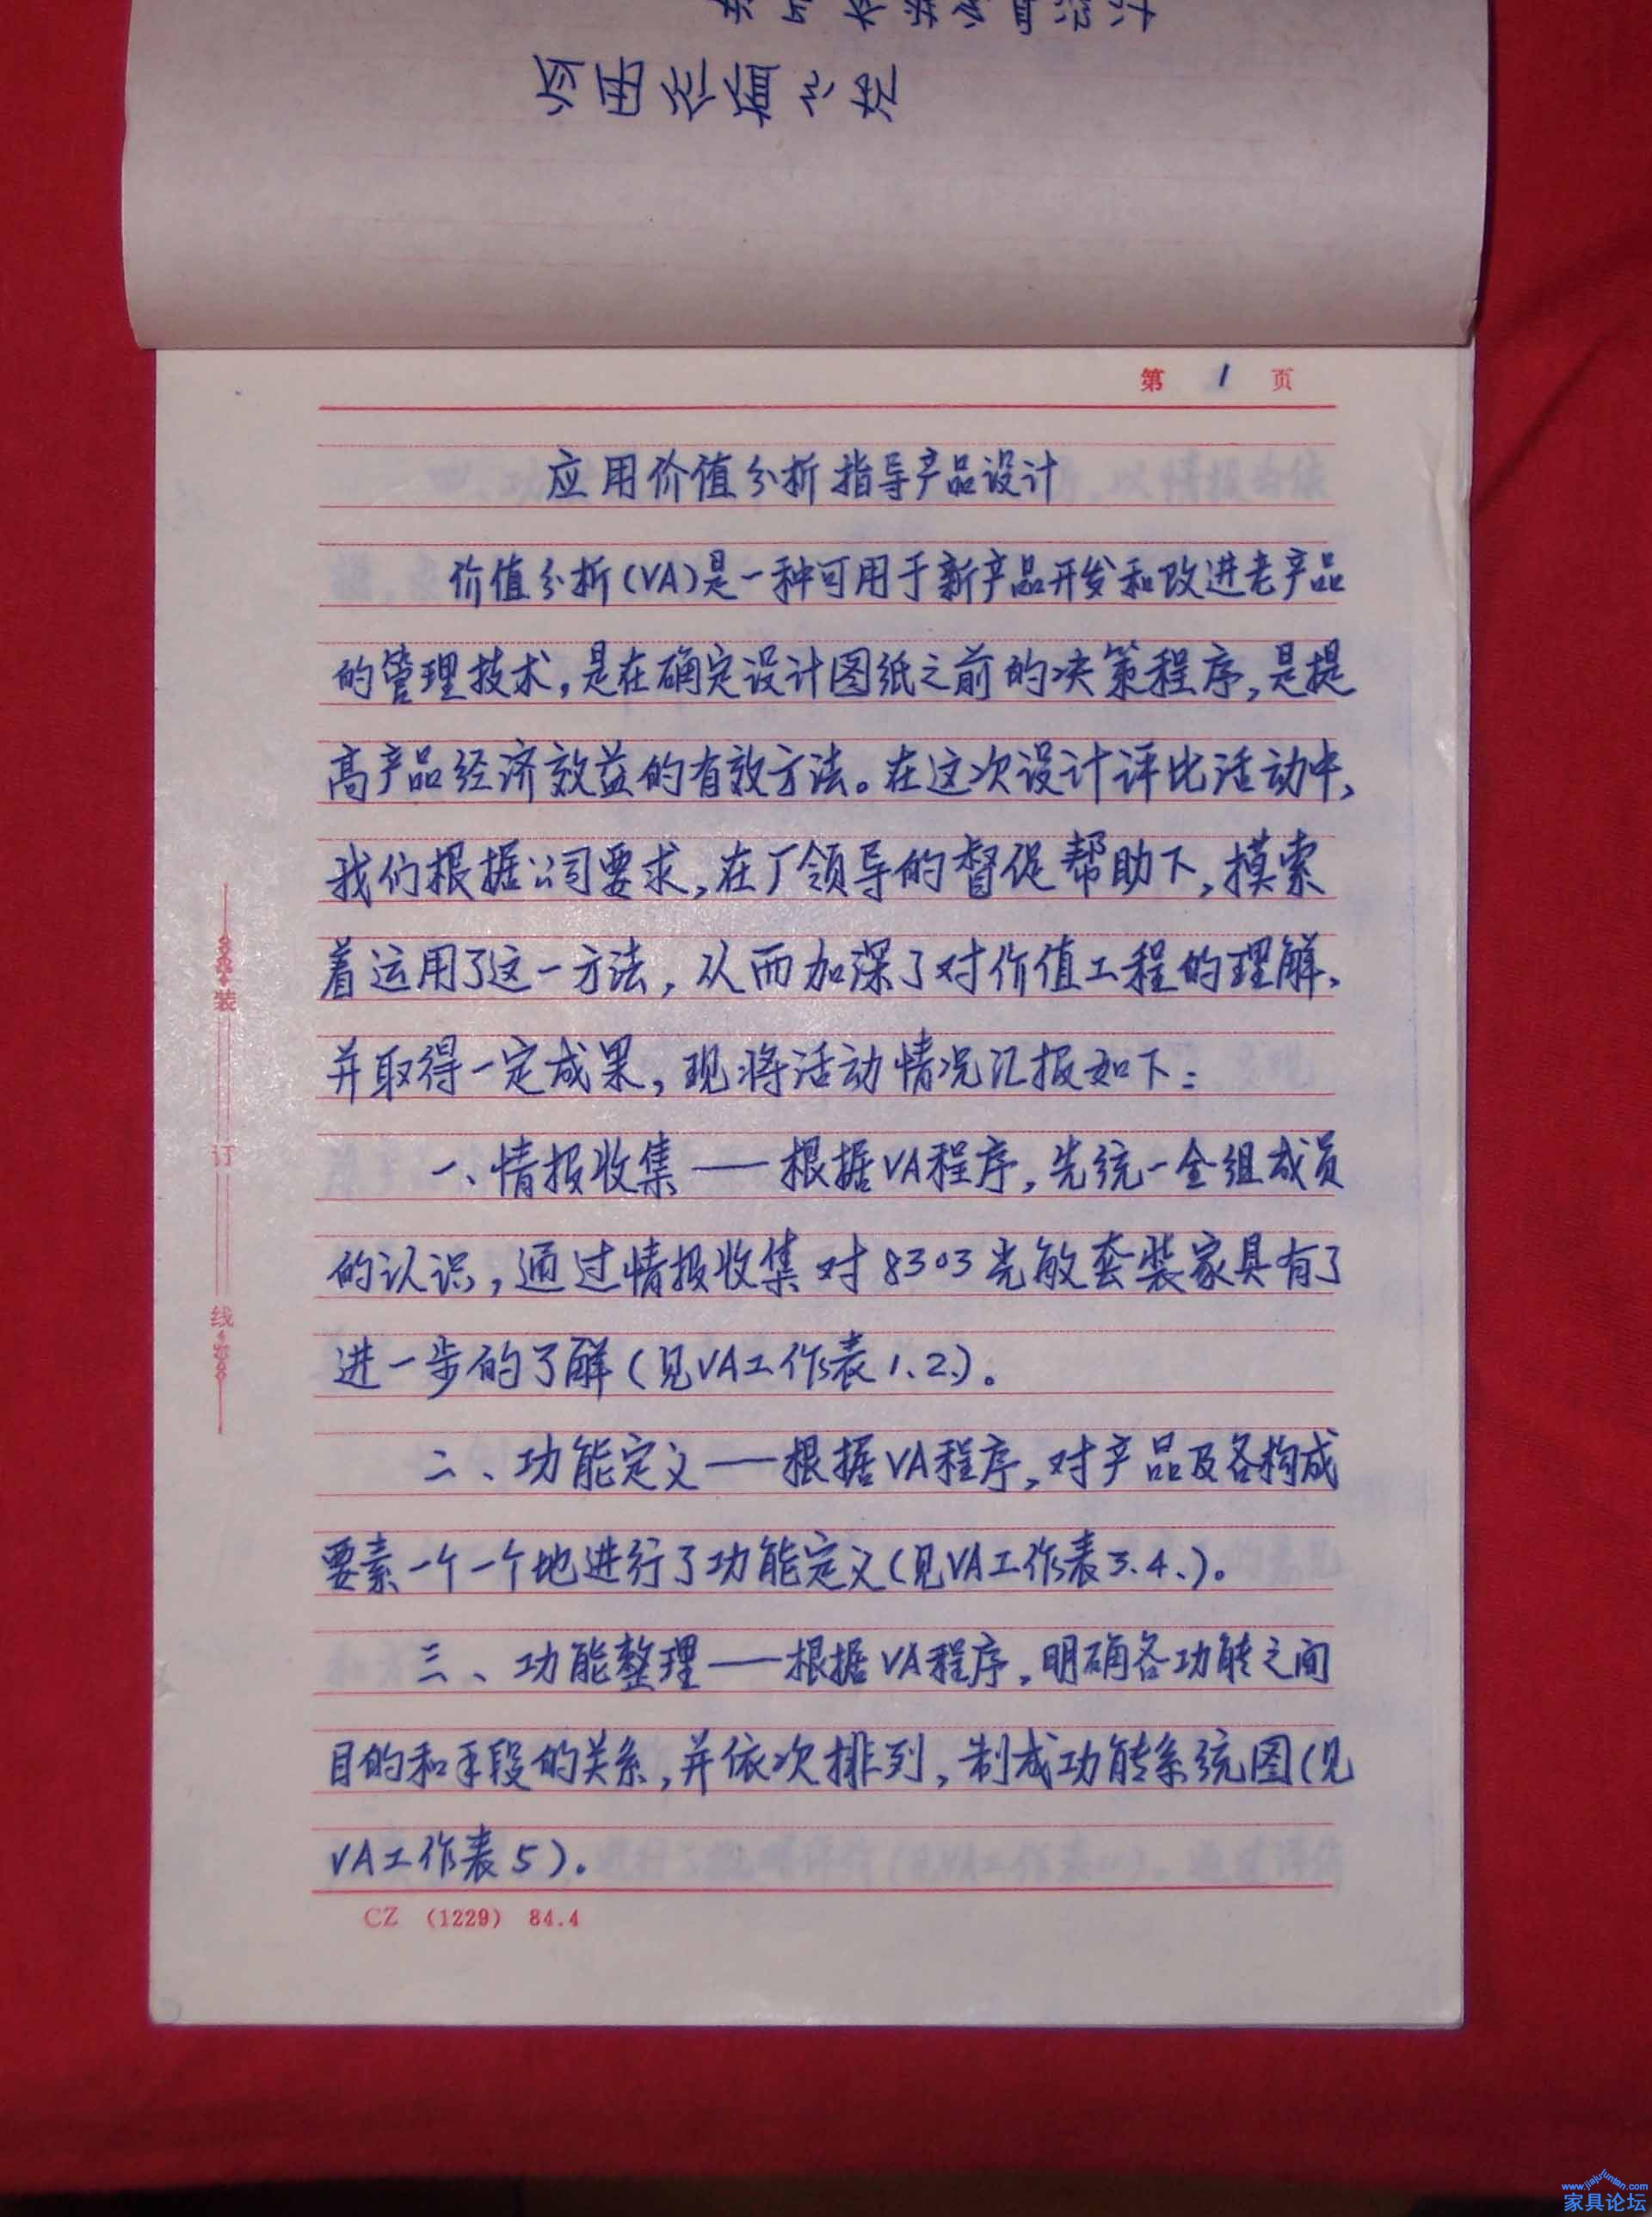 应用价值分析
第 1 页
应用价值分析指导产品设计
价值分析(VA)是一种可用于新产品开发和改进老产品
的管理技术,是在确定设计图纸之前的决策程序,是提
高产品经济效益的有效方法。在这次设计评比活动中,
我们根据公司要求,在厂领导的督促帮助下,摸索
着运用了这一方法,从而加深了对价值工程的理解、
并取得一定成果,现将活动情况汇报如下:
一、情报收集——根据VA程序,先统一全组成员
的认识,通过情报收集对8303光敏套装家具有了
进一步的了解(见VA工作表1、2、)。
二、功能定义——根据VA程序,对产品及各构成
要素一个一个地进行了功能定义(见VA工作表3、4、)。
三、功能整理——根据VA程序,明确各功能之间
目的和手段的关系,并依次排列,制成功能系统图(见
VA工作表5)。
装
订
线
CZ (1229) 84.4
www.jiajuluntan.com
家具论坛